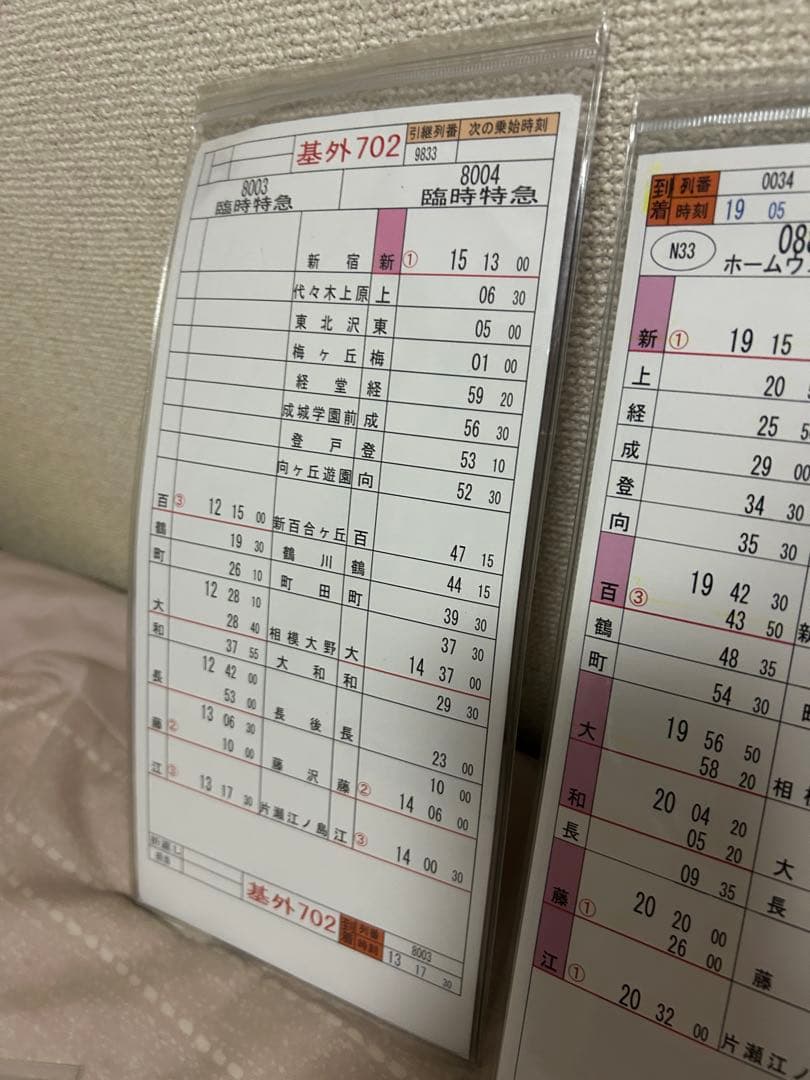 基外702 引継列番 次の乗始時刻
9833
8003 8004
臨時特急 臨時特急
新宿 新 ① 15 13 00
代々木上原 上 06 30
東北沢 東 05 00
梅ヶ丘 梅 01 00
経堂 経 59 20
成城学園前 成 56 30
登戸 登 53 10
向ヶ丘遊園 向 52 30
百 ③ 12 15 00 新百合ヶ丘 百 47 15
鶴 19 30 鶴川 鶴 44 15
町 26 10 町田 町 39 30
12 28 10 37 30
大 28 40 相模大野 大 14 37 00
和 37 55 大和 和 29 30
12 42 00
長 53 00 長後 長 23 00
13 06 30 10 00
藤 ② 10 00 藤沢 藤 ② 14 06 00
江 ③ 13 17 30 片瀬江ノ島 江 ③ 14 00 30
基外702 到着 列番 8003
時刻 13 17 30
到着 列番 0034
時刻 19 05
N33
ホームウ
新 ① 19 15
上 20
経 25
成 29 00
登 34 30
向 35 30
百 ③ 19 42 30
43 50 新
鶴 48 35
町 54 30 町
19 56 50
大 58 20 相模
20 04 20
和 05 20 大
長 09 35 長
20 20 00
藤 ① 26 00 藤
江 ① 20 32 00 片瀬江ノ